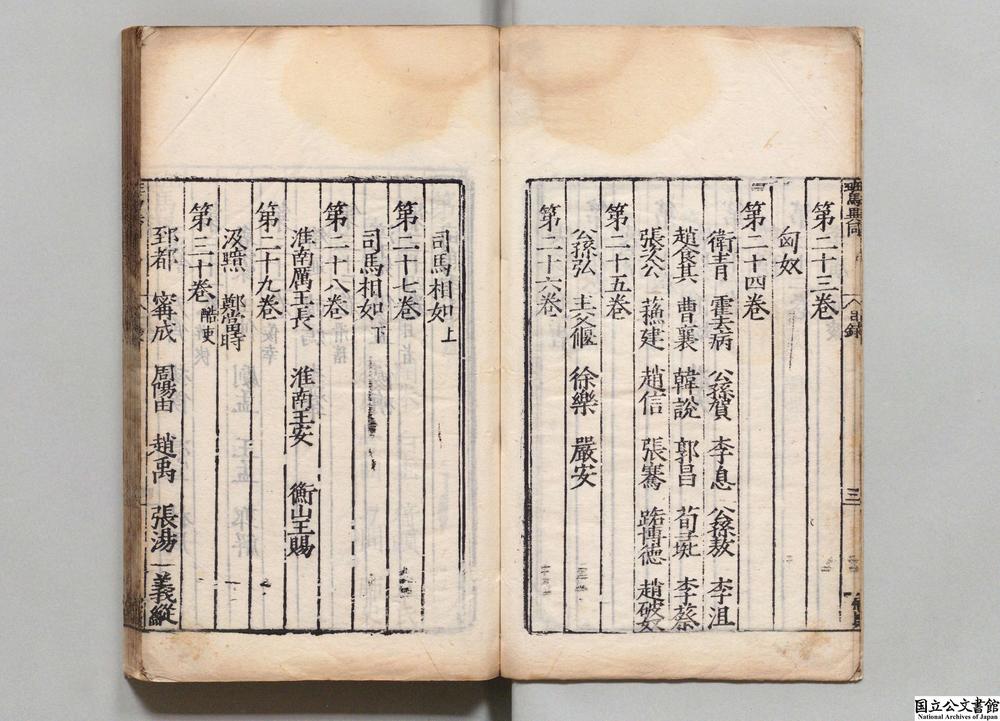 班馬異同
目錄
三
第二十三卷
匈奴
第二十四卷
衛青 霍去病 公孫賀 李息 公孫敖 李沮
趙食其 曹襄 韓說 郭昌 荀彘 李蔡
張次公 蘓建 趙信 張騫 路博德 趙破奴
第二十五卷
公孫弘 主父偃 徐樂 嚴安
第二十六卷
司馬相如上
第二十七卷
司馬相如下
第二十八卷
淮南厲王長 淮南王安 衡山王賜
第二十九卷
汲黯 鄭當時
第三十卷 酷吏
郅都 甯成 周陽由 趙禹 張湯 義縱
国立公文書館
National Archives of Japan